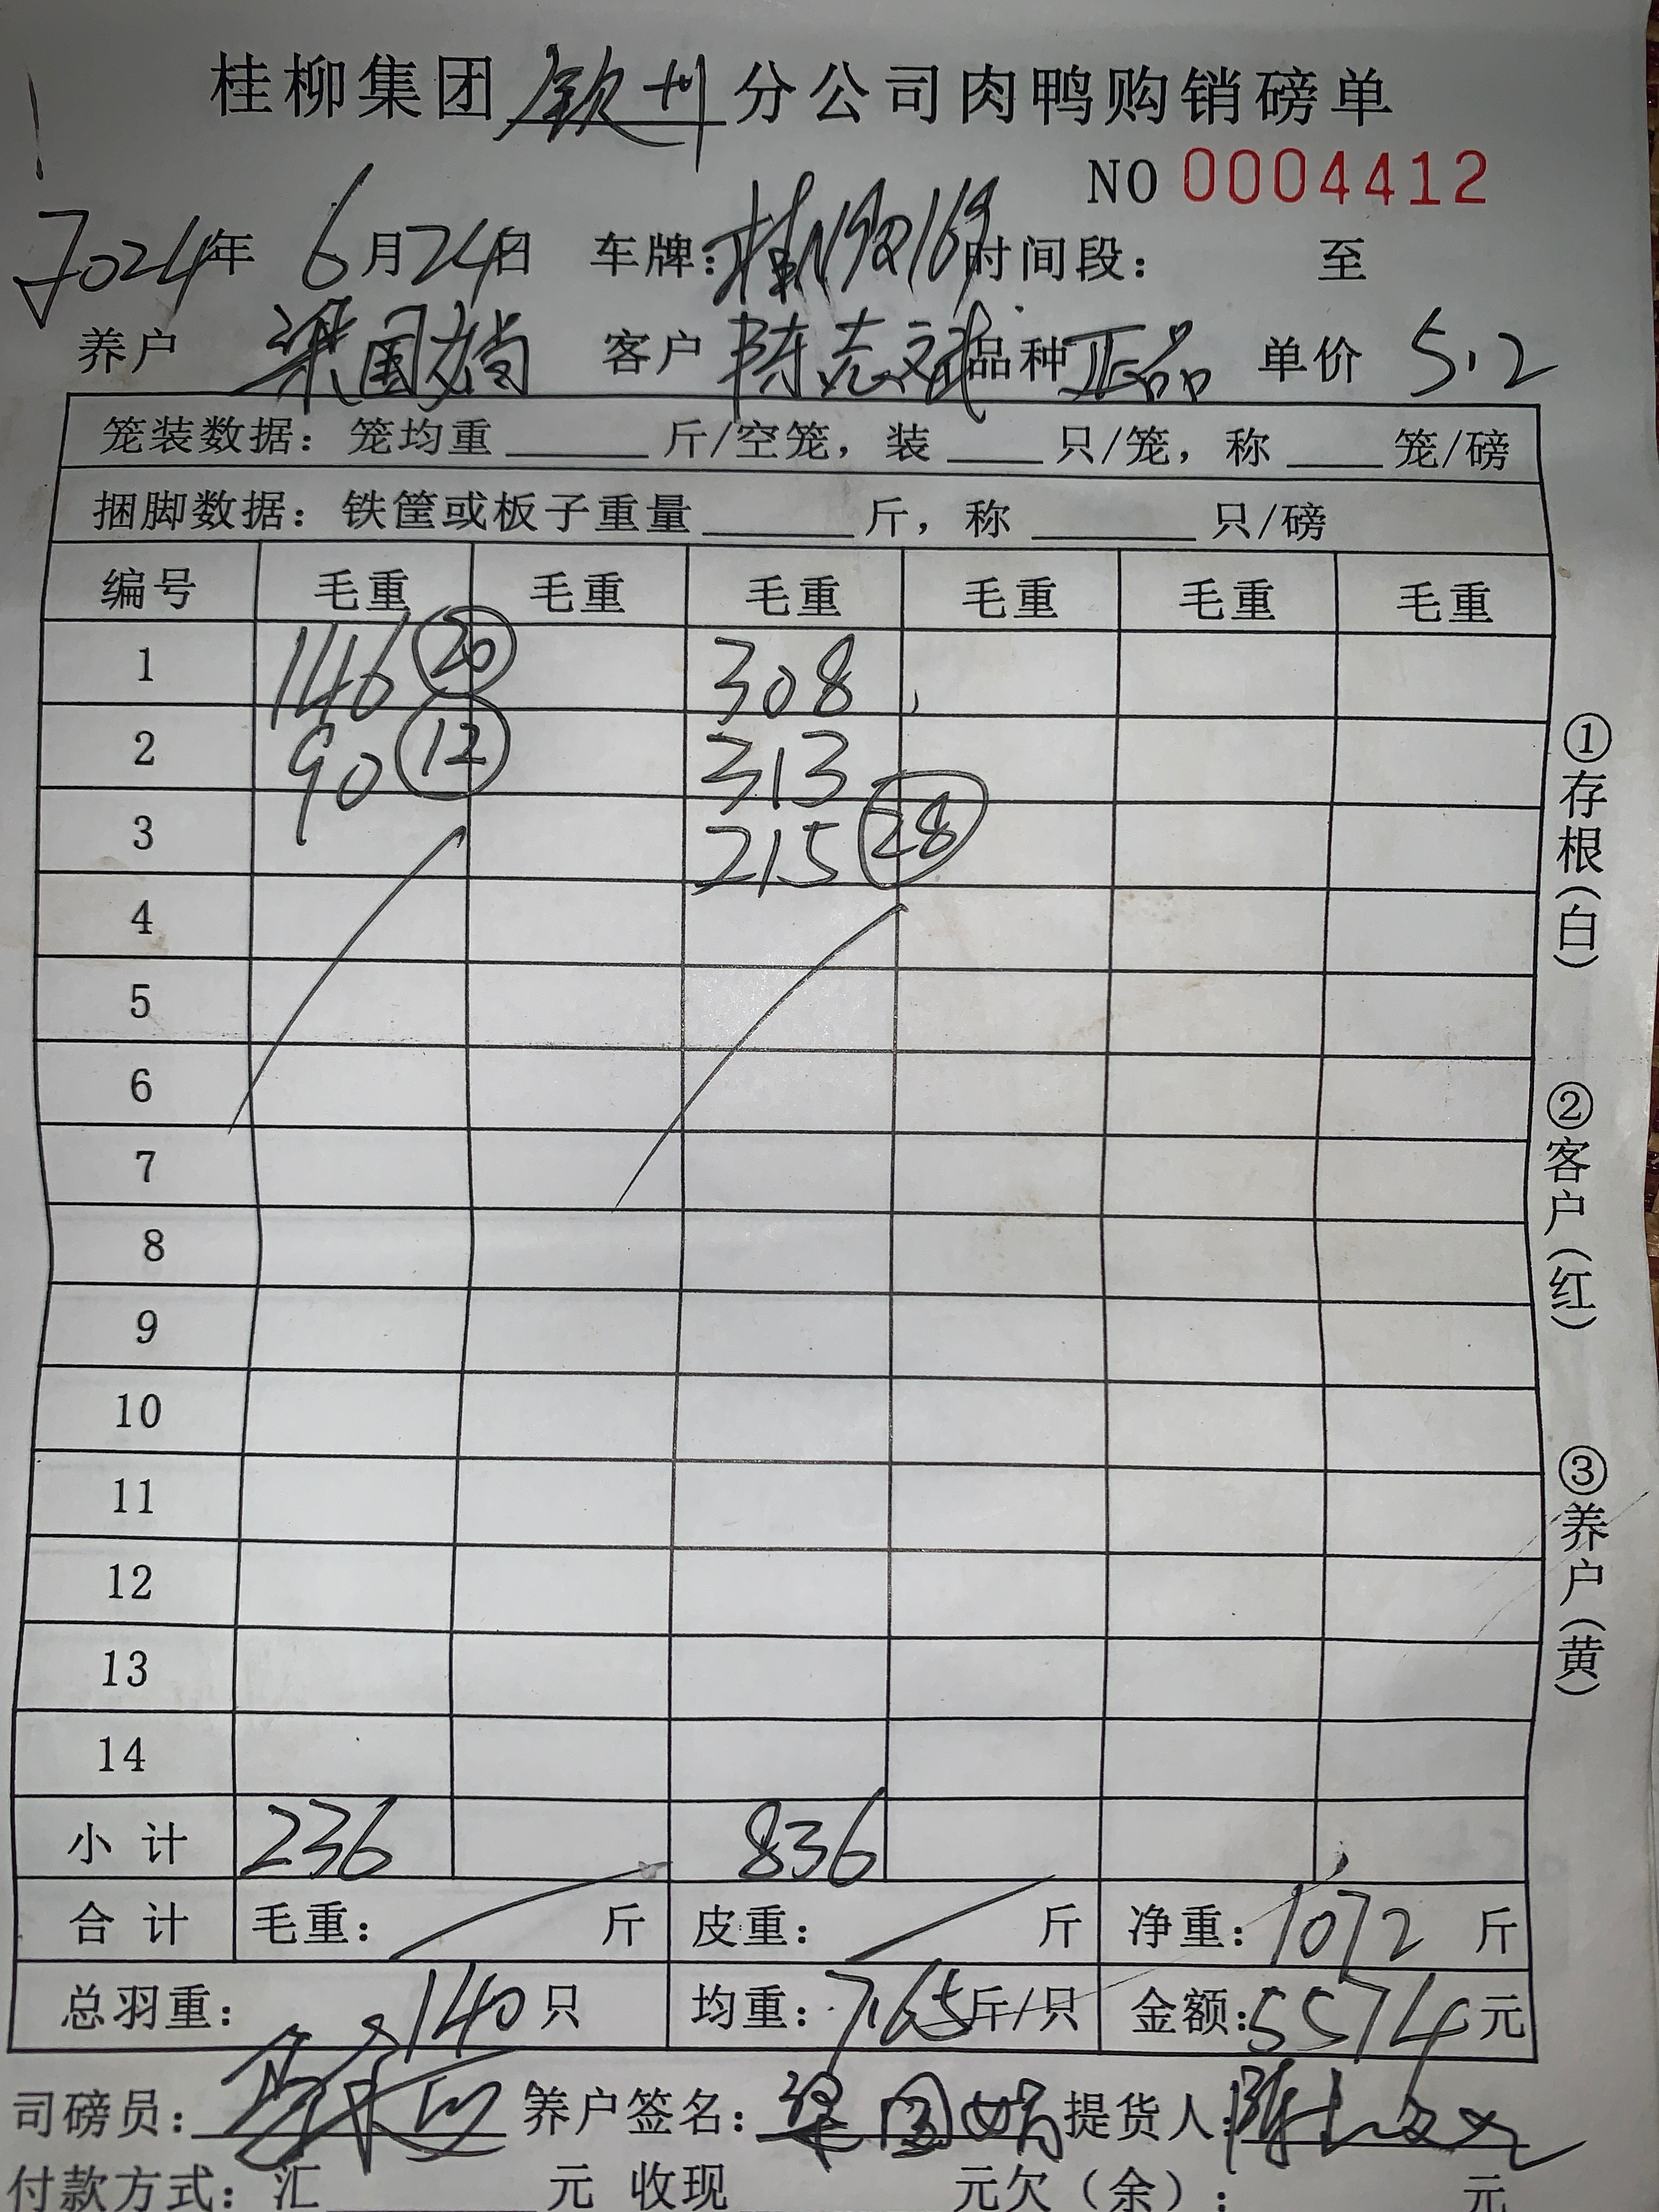 桂柳集团钦州分公司肉鸭购销磅单
NO 0004412
2024年 6月24日 车牌:桂N9Q169 时间段: 至
养户 梁国娟 客户 陈志斌 品种 正品 单价 5.2
笼装数据: 笼均重 斤/空笼, 装 只/笼, 称 笼/磅
捆脚数据: 铁筐或板子重量 斤, 称 只/磅
编号 毛重 毛重 毛重 毛重 毛重 毛重
1 146 20 308
2 90 12 313
3 215 28
4
5
6
7
8
9
10
11
12
13
14
小计 236 836
合计 毛重: 斤 皮重: 斤 净重: 1072 斤
总羽重: 140只 均重: 7.65斤/只 金额: 5574元
司磅员: 养户签名: 梁国娟 提货人: 陈志
付款方式: 汇 元 收现 元欠(余): 元
①存根(白)
②客户(红)
③养户(黄)